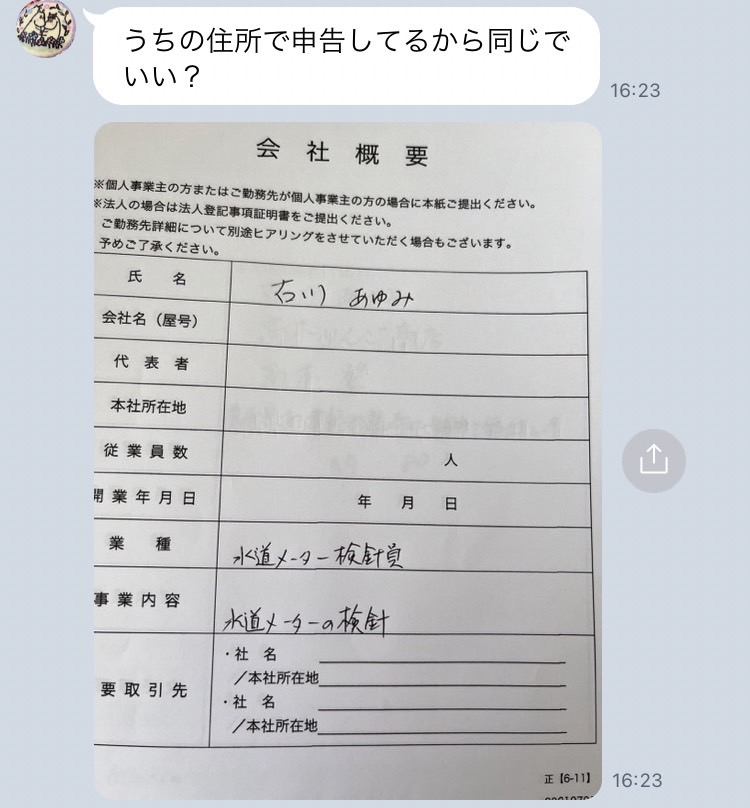 うちの住所で申告してるから同じで
いい？
16:23
会社概要
※個人事業主の方またはご勤務先が個人事業主の方の場合に本紙ご提出ください。
※法人の場合は法人登記事項証明書をご提出ください。
ご勤務先詳細について別途ヒアリングをさせていただく場合もございます。
予めご了承ください。
氏名 石川 あゆみ
会社名（屋号）
代表者
本社所在地
従業員数 人
開業年月日 年 月 日
業種 水道メーター検針員
事業内容 水道メーターの検針
要取引先
・社名
／本社所在地
・社名
／本社所在地
正【6-11】
16:23